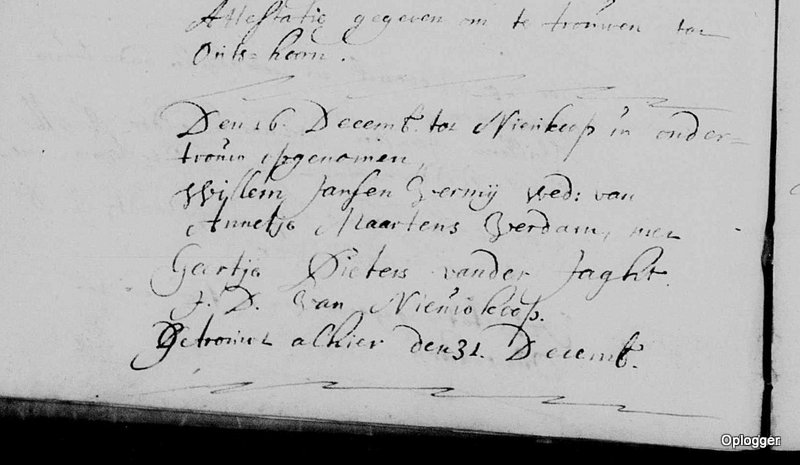 Attestatie gegeven om te trouwen tot
Outs-hoorn.
Den 16. Decemb. tot Nieukoop in onder=
trouw opgenomen,
Willem Jansen Vermij wed: van
Annetje Maartens Verdam, met
Gertje Pieters vander Jaght.
J. D. van Nieuwkoop.
Getrouwt alhier den 31. Decemb.
Oplogger